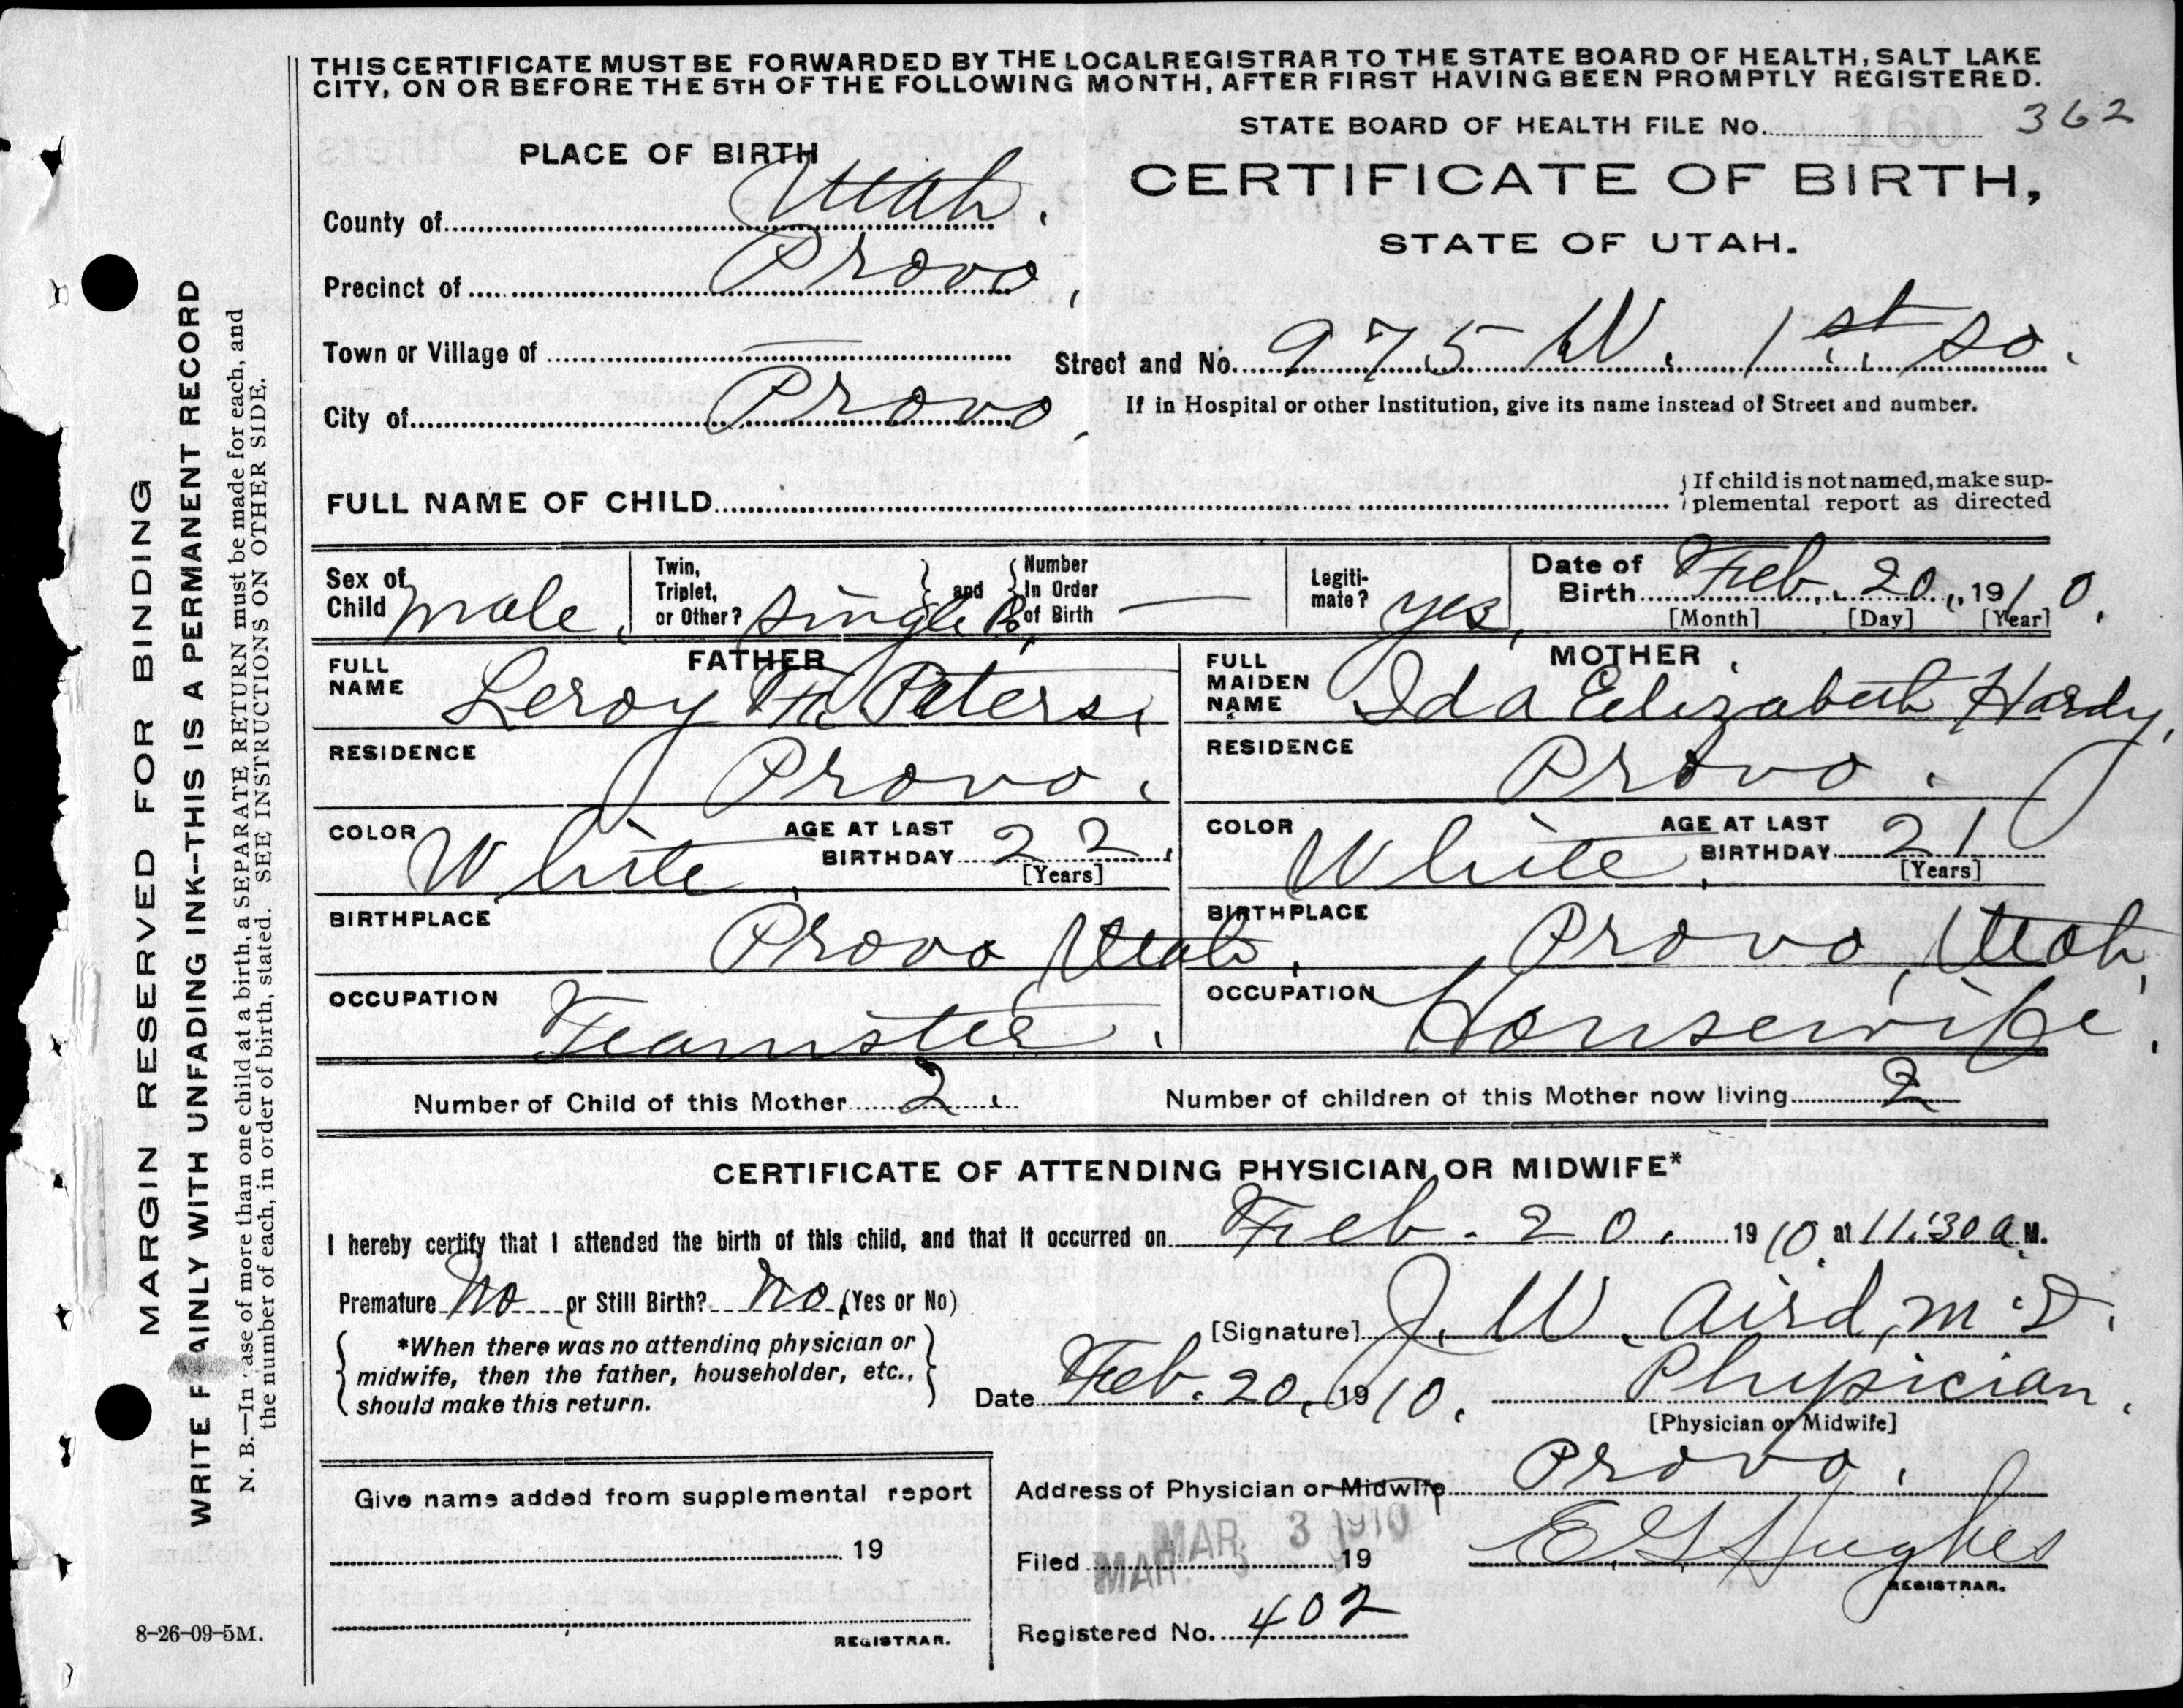 THIS CERTIFICATE MUST BE FORWARDED BY THE LOCAL REGISTRAR TO THE STATE BOARD OF HEALTH, SALT LAKE
CITY, ON OR BEFORE THE 5TH OF THE FOLLOWING MONTH, AFTER FIRST HAVING BEEN PROMPTLY REGISTERED.
STATE BOARD OF HEALTH FILE No. 160 362
PLACE OF BIRTH
CERTIFICATE OF BIRTH,
STATE OF UTAH.
County of Utah.
Precinct of Provo,
Town or Village of —
Street and No. 975 W. 1st So.
City of Provo,
If in Hospital or other Institution, give its name instead of Street and number.
FULL NAME OF CHILD
If child is not named, make sup-
plemental report as directed
Sex of Child male,
Twin, Triplet, or Other? Single
and Number In Order of Birth —
Legiti-mate? yes,
Date of Birth Feb. 20, 1910.
[Month] [Day] [Year]
FATHER
FULL NAME Leroy Peters,
RESIDENCE Provo.
COLOR White,
AGE AT LAST BIRTHDAY 22,
[Years]
BIRTHPLACE Provo Utah,
OCCUPATION Teamster.
MOTHER
FULL MAIDEN NAME Ida Elizabeth Hardy,
RESIDENCE Provo.
COLOR White,
AGE AT LAST BIRTHDAY 21
[Years]
BIRTHPLACE Provo, Utah,
OCCUPATION Housewife,
Number of Child of this Mother 2.
Number of children of this Mother now living 2
CERTIFICATE OF ATTENDING PHYSICIAN OR MIDWIFE*
I hereby certify that I attended the birth of this child, and that it occurred on Feb. 20, 1910, at 11:30 a. M.
Premature No or Still Birth? No, (Yes or No)
*When there was no attending physician or
midwife, then the father, householder, etc.,
should make this return.
[Signature] J. W. Aird, M.D.
Date Feb. 20, 1910.
Physician,
[Physician or Midwife]
Give name added from supplemental report
19
REGISTRAR.
Address of Physician or Midwife Provo.
Filed MAR 3 1910 19
MAR 3
E G Hughes
REGISTRAR.
Registered No. 402
8-26-09-5M.
MARGIN RESERVED FOR BINDING
WRITE P AINLY WITH UNFADING INK--THIS IS A PERMANENT RECORD
N. B.—In ase of more than one child at a birth, a SEPARATE RETURN must be made for each, and
the number of each, in order of birth, stated. SEE INSTRUCTIONS ON OTHER SIDE.